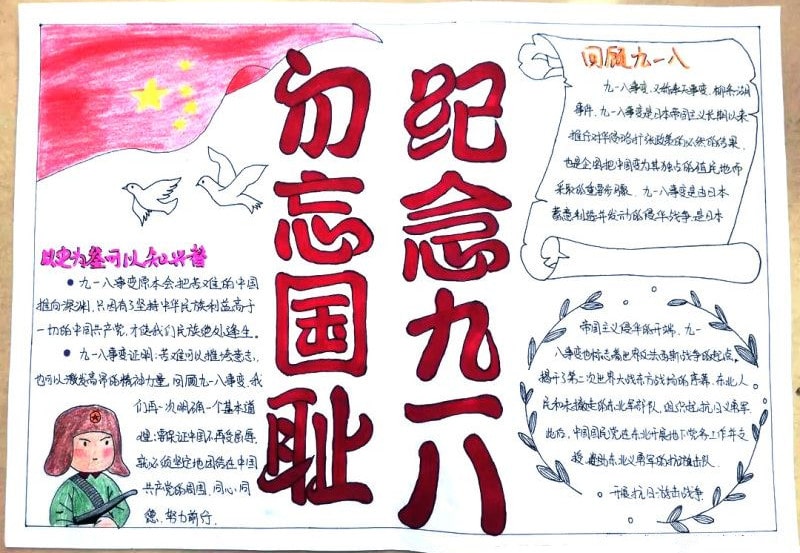 纪念九一八
勿忘国耻
以史为鉴可以知兴替
九一八事变原本会把苦难的中国
推向深渊，只因有了坚持中华民族利益高于
一切的中国共产党，才使我们民族绝处逢生。
九一八事变证明，苦难可以摧垮意志，
也可以激发高昂的精神力量。回顾九一八事变，我
们再一次明确一个基本道
理：要保证中国不再受屈辱，
就必须坚定地团结在中国
共产党的周围，同心同
德，努力前行。
回顾九一八
九一八事变，又称奉天事变、柳条湖
事件。九一八事变是日本帝国主义长期以来
推行对华侵略扩张政策的必然的结果，
也是企图把中国变为其独占的殖民地而
采取的重要步骤。九一八事变是由日本
蓄意制造并发动的侵华战争，是日本
帝国主义侵华的开端。九一
八事变也标志着世界反法西斯战争的起点，
揭开了第二次世界大战东方战场的序幕。东北人
民和未撤走的东北军部队，组织起抗日义勇军。
此后，中国国民党在东北开展地下党务工作并支
援、助东北义勇军的抗游击队。
开展抗日游击战争